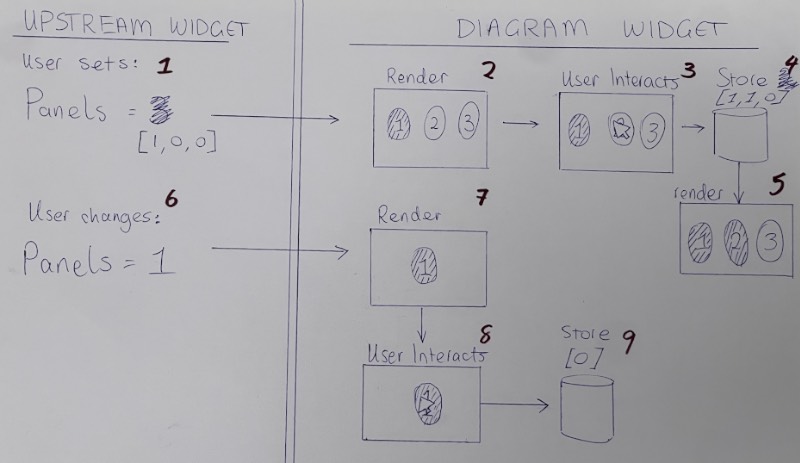 UPSTREAM WIDGET
User sets: 1
Panels = 3
[1,0,0]
User changes: 6
Panels = 1
DIAGRAM WIDGET
Render 2
1 2 3
User Interacts 3
1 2 3
Store 4
[1,1,0]
render 5
1 2 3
Render 7
1
User Interacts 8
1
Store 9
[0]